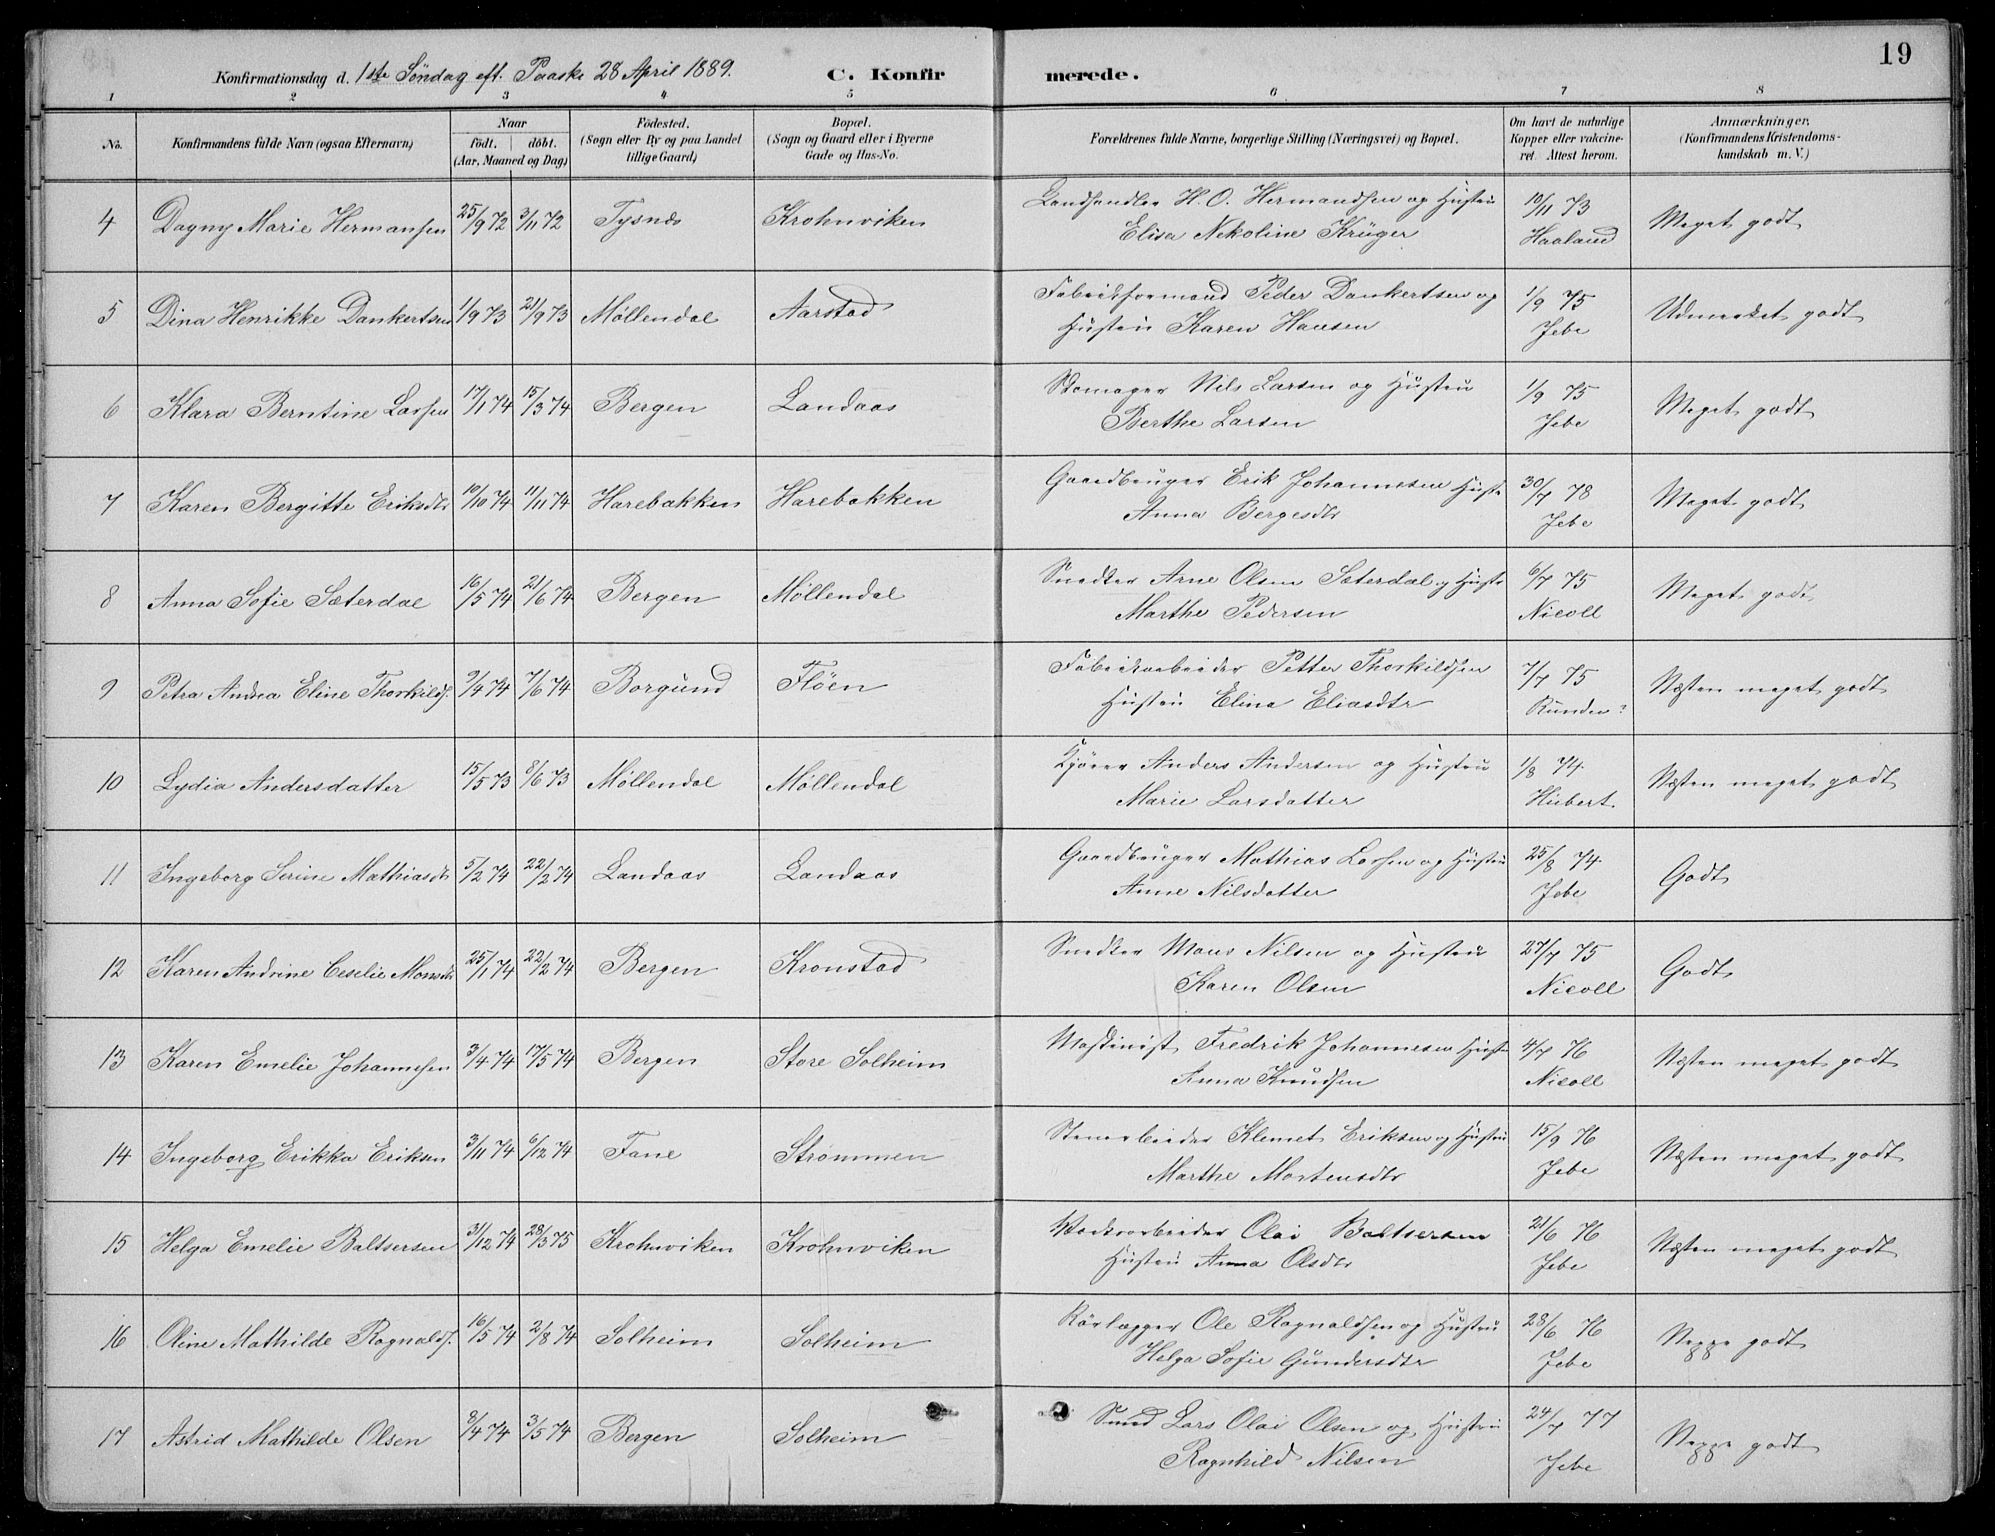 19
Konfirmationsdag d. 1ste Søndag eft. Paaske 28 April 1889. C. Konfirmerede.
1 2 3 4 5 6 7 8
No. Konfirmandens fulde Navn (ogsaa Efternavn) Naar født. døbt. (Aar, Maaned og Dag) Fødested. (Sogn eller By og paa Landet tillige Gaard) Bopæl. (Sogn og Gaard eller i Byerne Gade og Hus-No. Forældrenes fulde Navne, borgerlige Stilling (Næringsvei) og Bopæl. Om havt de naturlige Kopper eller vakcineret. Attest herom. Anmærkninger. (Konfirmandens Kristendomskundskab m. V.)
4 Dagny Marie Hermansen 25/9 72 3/11 72 Tysnæs Krohnviken Landhandler H. O. Hermandsen og Hustru 10/11 73 Meget godt
Elisa Nekoline Krüger Haaland
5 Dina Henrikke Dankertsen 1/9 73 21/9 73 Møllendal Aarstad Fabrikformand Peder Dankertsen og 1/9 75 Udmærket godt
Hustru Karen Hansen Jebe
6 Klara Berntine Larsen 17/1 74 15/3 74 Bergen Landaas Skomager Nils Larsen og Hustru 1/9 75 Meget godt
Berthe Larsen Jebe
7 Karen Bergitte Eriksdtr 10/10 74 11/11 74 Harebakken Harebakken Gaardbruger Erik Johannesen Hustr 30/7 78 Meget godt
Anna Bergesdtr Jebe
8 Anna Sofie Sæterdal 16/5 74 21/6 74 Bergen Møllendal Snedker Arne Olsen Sæterdal og Hustr 6/7 75 Meget godt
Marthe Pedersen Nicoll
9 Petra Andrea Eline Thorkilds. 9/4 74 7/6 74 Borgund Fløen Fabrikarbeider Petter Thorkildsen 7/7 75 Næsten meget godt
Hustru Elina Eliasdtr Runden?
10 Lydia Andersdatter 15/5 73 8/6 73 Møllendal Møllendal Kjører Anders Andersen og Hustru 1/8 74 Næsten meget godt
Marie Larsdatter Hiebert
11 Ingeborg Serine Mathiasdtr 5/2 74 22/2 74 Landaas Landaas Gaardbruger Mathias Larsen og Hustru 25/8 74 Godt
Anne Nilsdatter Jebe
12 Karen Andrine Ceselie Monsdtr 25/1 74 22/2 74 Bergen Kronstad Snedker Mons Nilsen og Hustru 27/7 75 Godt
Karen Olsen Nicoll
13 Karen Emelie Johannesen 3/4 74 17/5 74 Bergen Store Solheim Maskinist Fredrik Johannesen Hustr 4/7 76 Næsten meget godt
Anna Knudsen Nicoll
14 Ingeborg Erikka Eriksen 3/11 74 6/12 74 Fane Strømmen Stenarbeider Klemet Eriksen og Hustru 15/9 76 Næsten meget godt
Marthe Mortensdtr Jebe
15 Helga Emelie Baltsersen 31/12 74 28/3 75 Krohnviken Krohnviken Olai Baltsersen 21/6 76 Næsten meget godt
Hustru Anna Olsdtr Jebe
16 Oline Mathilde Ragnalds. 16/5 74 2/8 74 Solheim Solheim Rørlægger Ole Ragnaldsen og Hustru 28/6 76 Neppe godt
Helga Sofie Gundersdtr Jebe
17 Astrid Mathilde Olsen 8/4 74 3/5 74 Bergen Solheim Smed Lars Olai Olsen og Hustru 24/7 77 Neppe godt
Ragnhild Nilsen Jebe